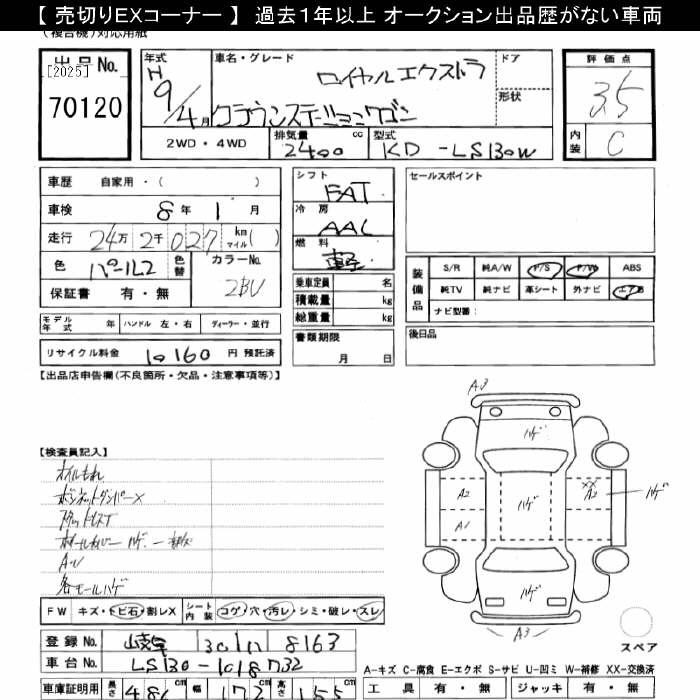 【 売切りEXコーナー 】 過去１年以上 オークション出品歴がない車両
(複合機)対応用紙
出品No.
[2025]
70120
年式 H 9/4月
車名・グレード
ロイヤルエクストラ
クラウンステーションワゴン
ドア
形状
評価点
3.5
内装 C
2WD・4WD
排気量 2400 cc
型式 KD-LS130W
車歴 自家用・( )
車検 8年 1月
走行 24万 2千 027 km マイル( )
色 パール2 色替
カラーNo. 2BU
保証書 有・無
モデル年式 年 ハンドル 左・右 ディーラー・並行
リサイクル料金 10160 円 預託済
シフト FAT
冷房 AAC
燃料 軽
乗車定員 名
積載量 kg
総重量 kg
書類期限
月 日
セールスポイント
装備品
S/R 純A/W P/S P/W ABS
純TV 純ナビ 革シート 外ナビ エアB
ナビ型番：
後日品
【出品店申告欄(不良箇所・欠品・注意事項等)】
【検査員記入】
オイルもれ
ボンネットダンパーX
ホイールカバー ハゲ
各モールハゲ
A3
ハゲ
A2
A1
ハゲ
XX
A2
ハゲ
ハゲ
A3
スペア
FW キズ・トビ石・割レX シート内装 コゲ・穴・汚レ・シミ・破レ・スレ
登録No. 岐阜 301 8163
車台No. LS130-1018732
A-キズ C-腐食 E-エクボ S-サビ U-凹ミ W-補修 XX-交換済
車庫証明用 長さ 486 cm 幅 172 cm 高さ 155 cm
工具 有・無 ジャッキ 有・無